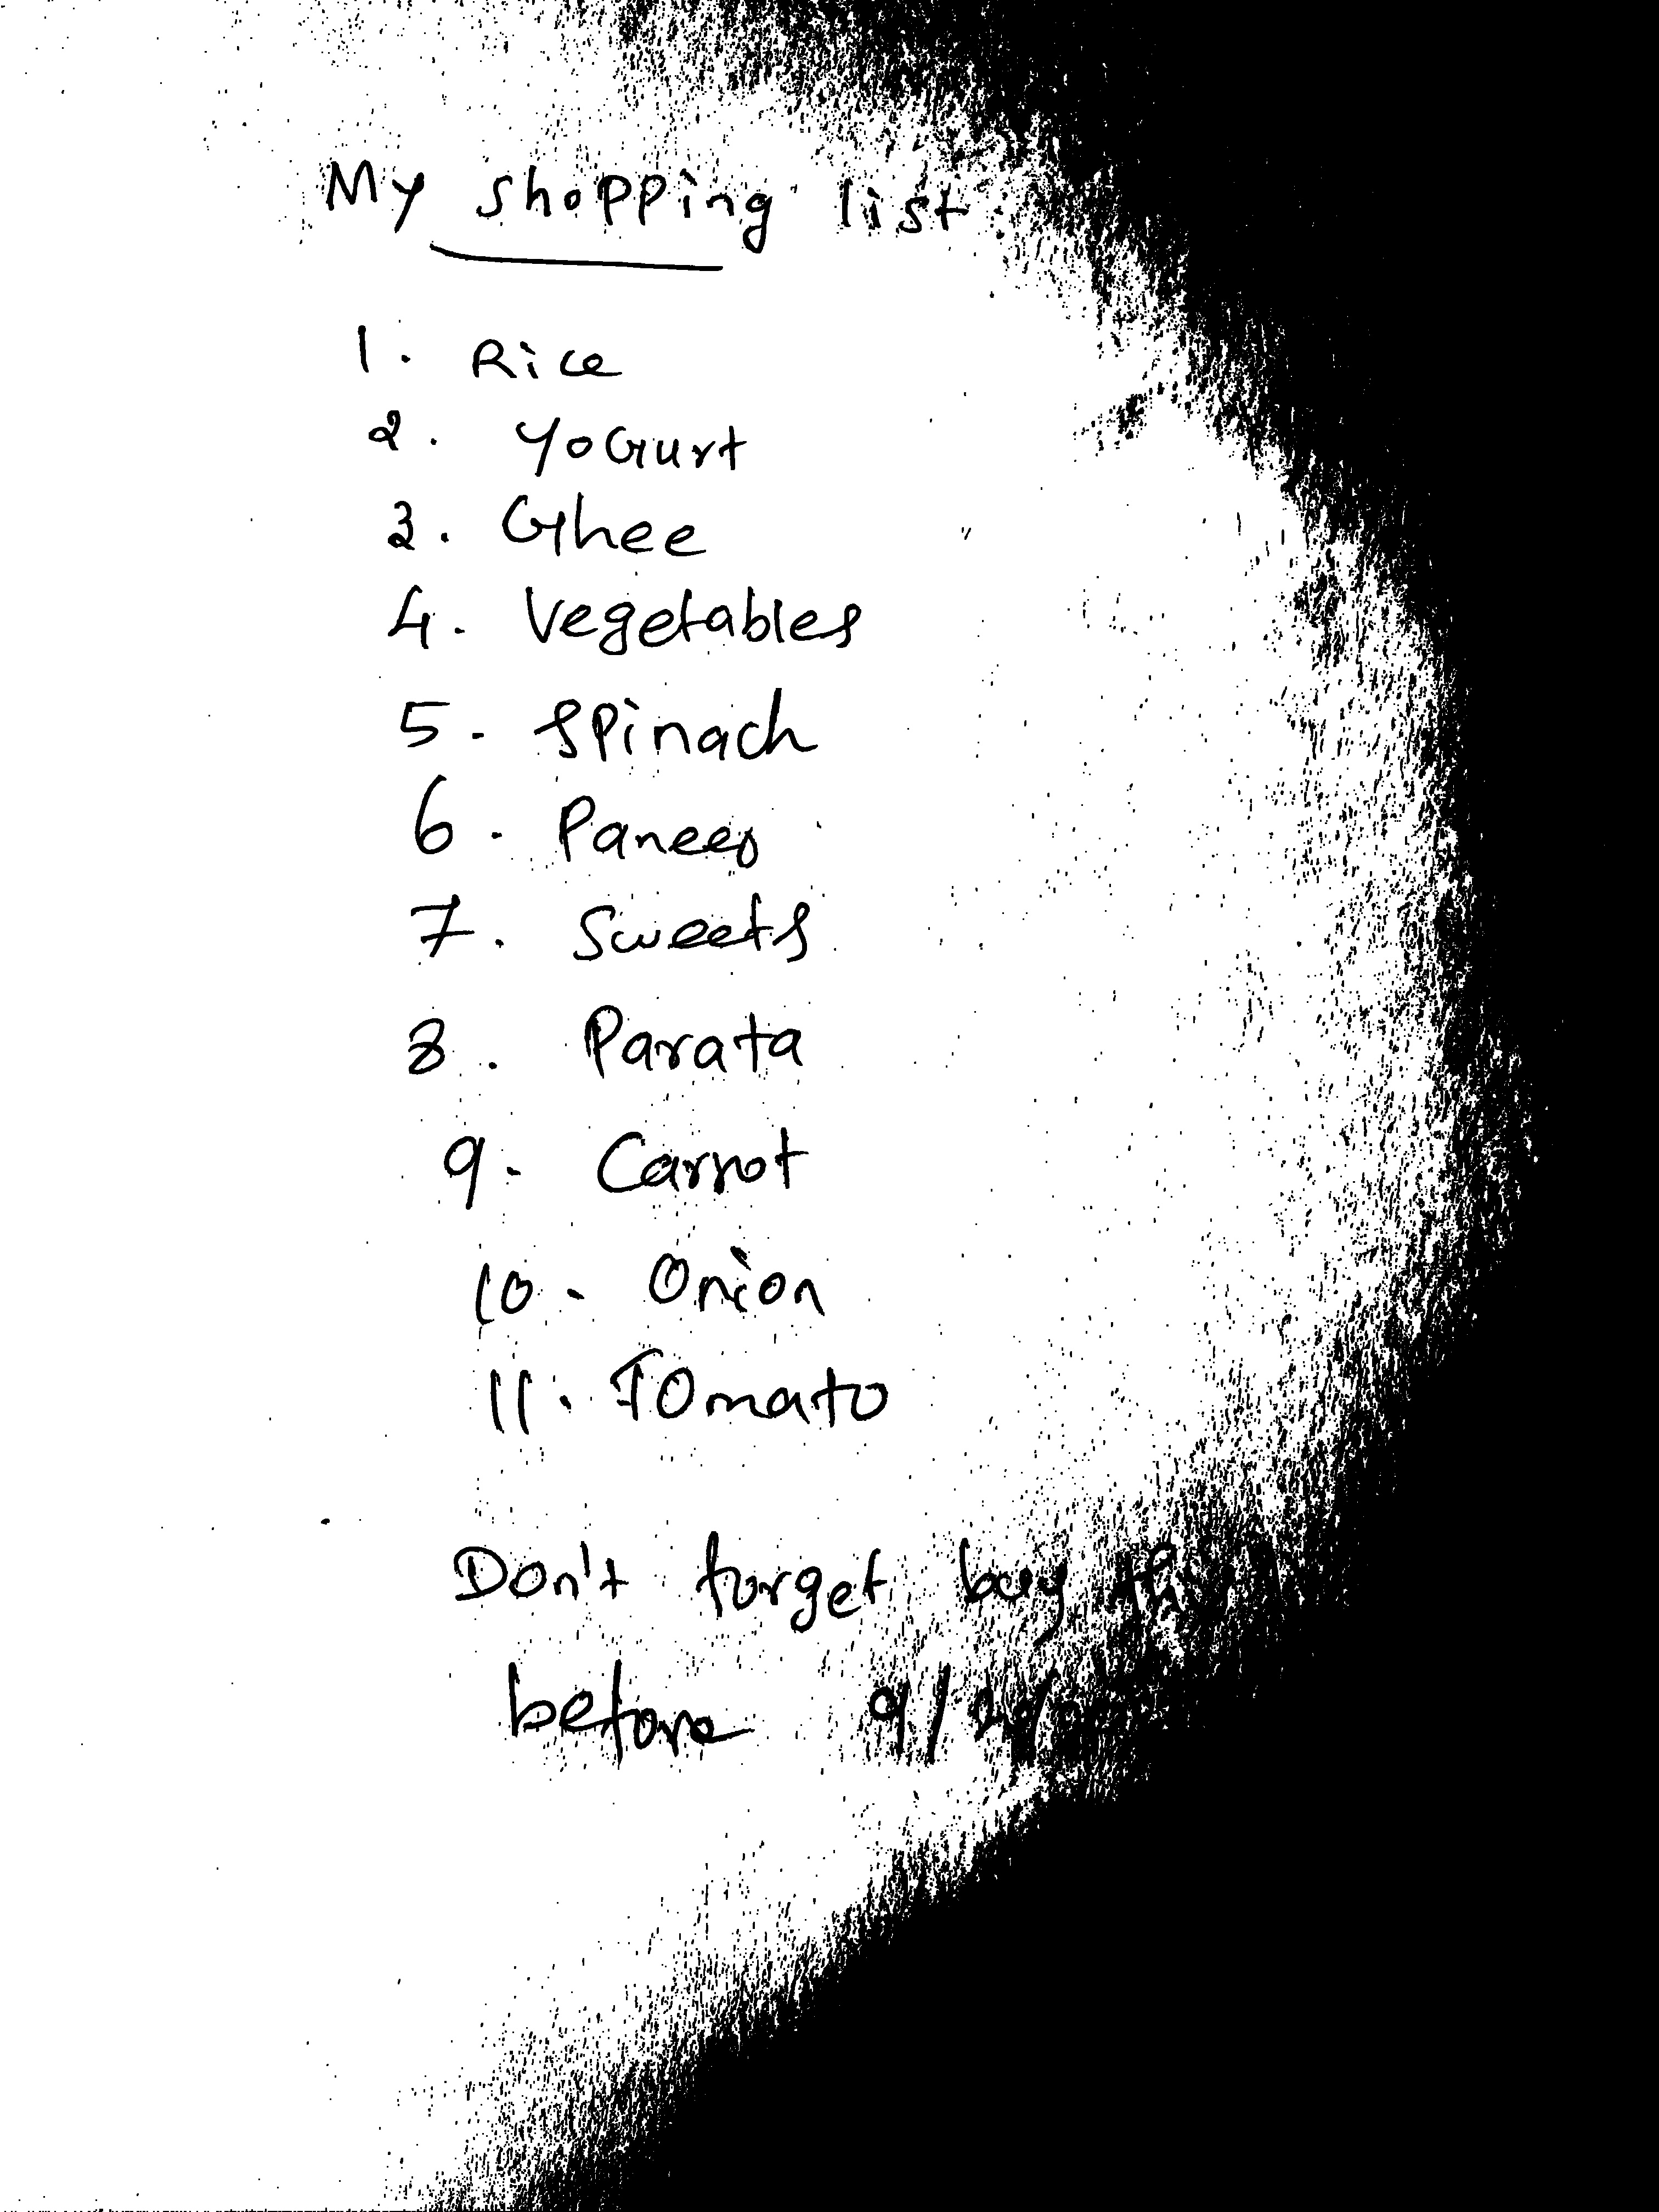 My shopping list:
1. Rice
2. YoGurt
3. Ghee
4. Vegetables
5. Spinach
6. Paneer
7. Sweets
8. Parata
9. Carrot
10. Onion
11. Tomato
Don't forget buy
before 9/